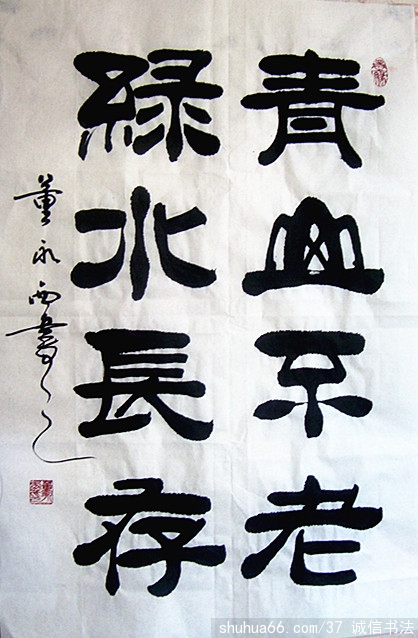 青山不老
緑水長存
董永西書
shuhua66.com/37 诚信书法